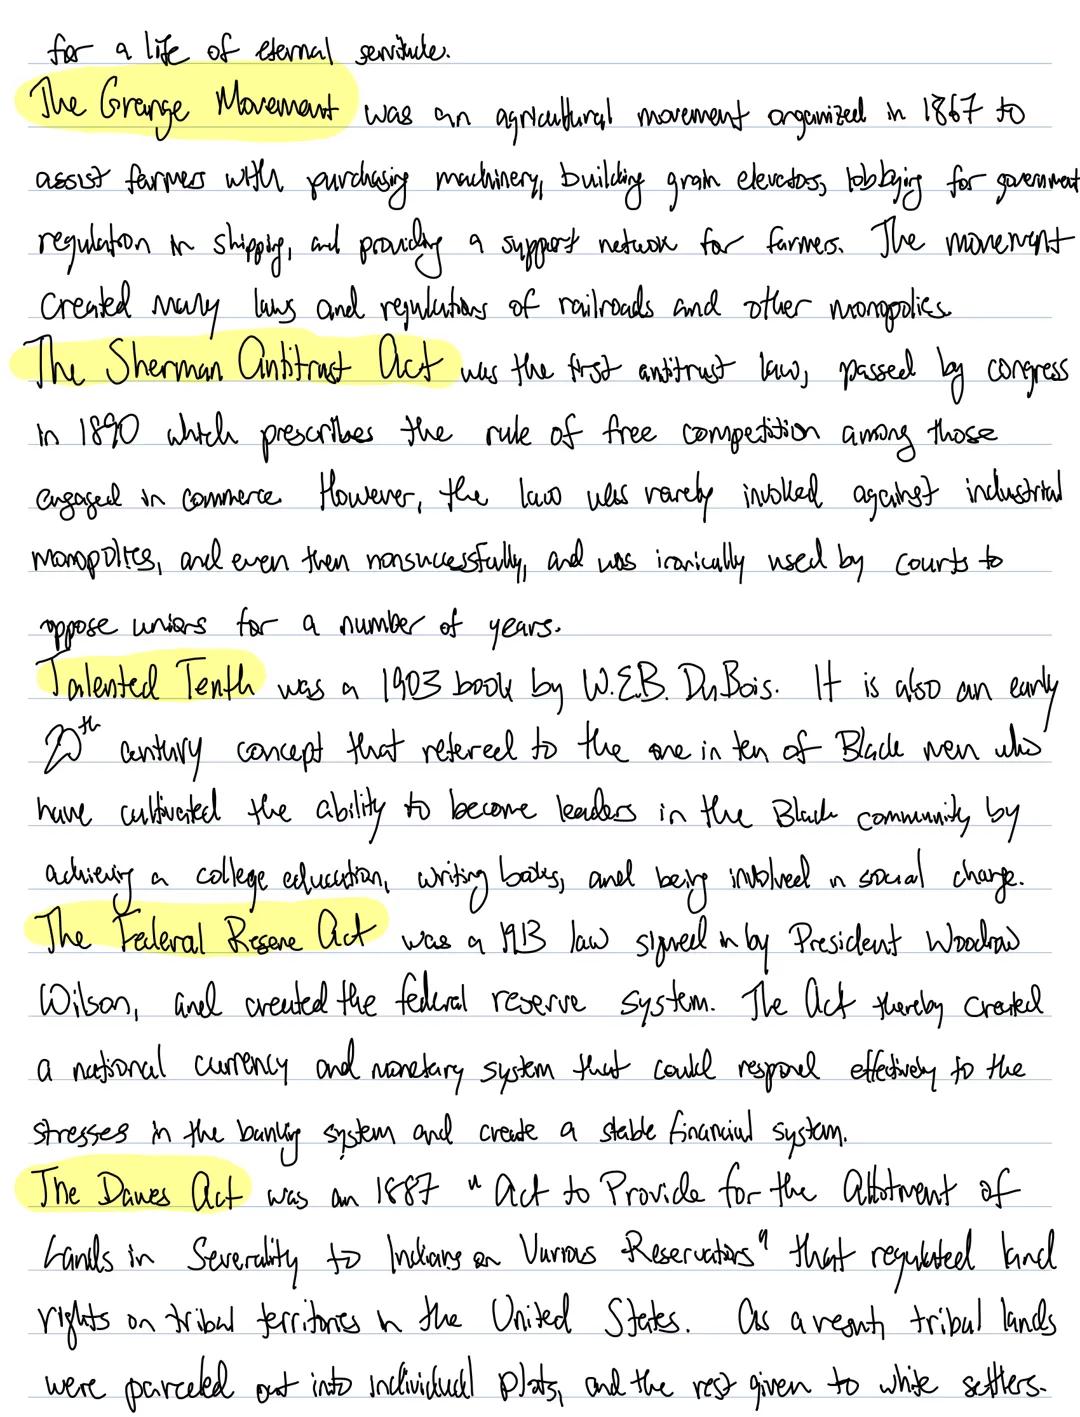 for a life of eternal servitude.
The Grange Movement was an agricultural movement organized in 1867 to
assist farmers with purchasing machinery, building grain elevators, lobbying for government
regulation in shipping, and providing a support network for farmers. The movement
created many laws and regulations of railroads and other monopolies.
The Sherman Antitrust Act was the first antitrust law, passed by congress
in 1890 which prescribes the rule of free competition among those
engaged in commerce. However, the law was rarely invoked against industrial
monopolies, and even then nonsuccessfully, and was ironically used by courts to
oppose unions for a number of years.
Talented Tenth was a 1903 book by W.E.B. DuBois. It is also an early
20th century concept that refered to the one in ten of Black men who
have cultivated the ability to become leaders in the Black community by
achieving a college education, writing books, and being involved in social change.
The Federal Reserve Act was a 1913 law signed in by President Woodrow
Wilson, and created the federal reserve system. The Act thereby created
a national currency and monetary system that could respond effectively to the
stresses in the banking system and create a stable financial system.
The Dawes Act was an 1887 "Act to Provide for the Allotment of
Lands in Severality to Indians on Various Reservations" that regulated land
rights on tribal territories in the United States. As a result, tribal lands
were parceled out into individual plots, and the rest given to white settlers.